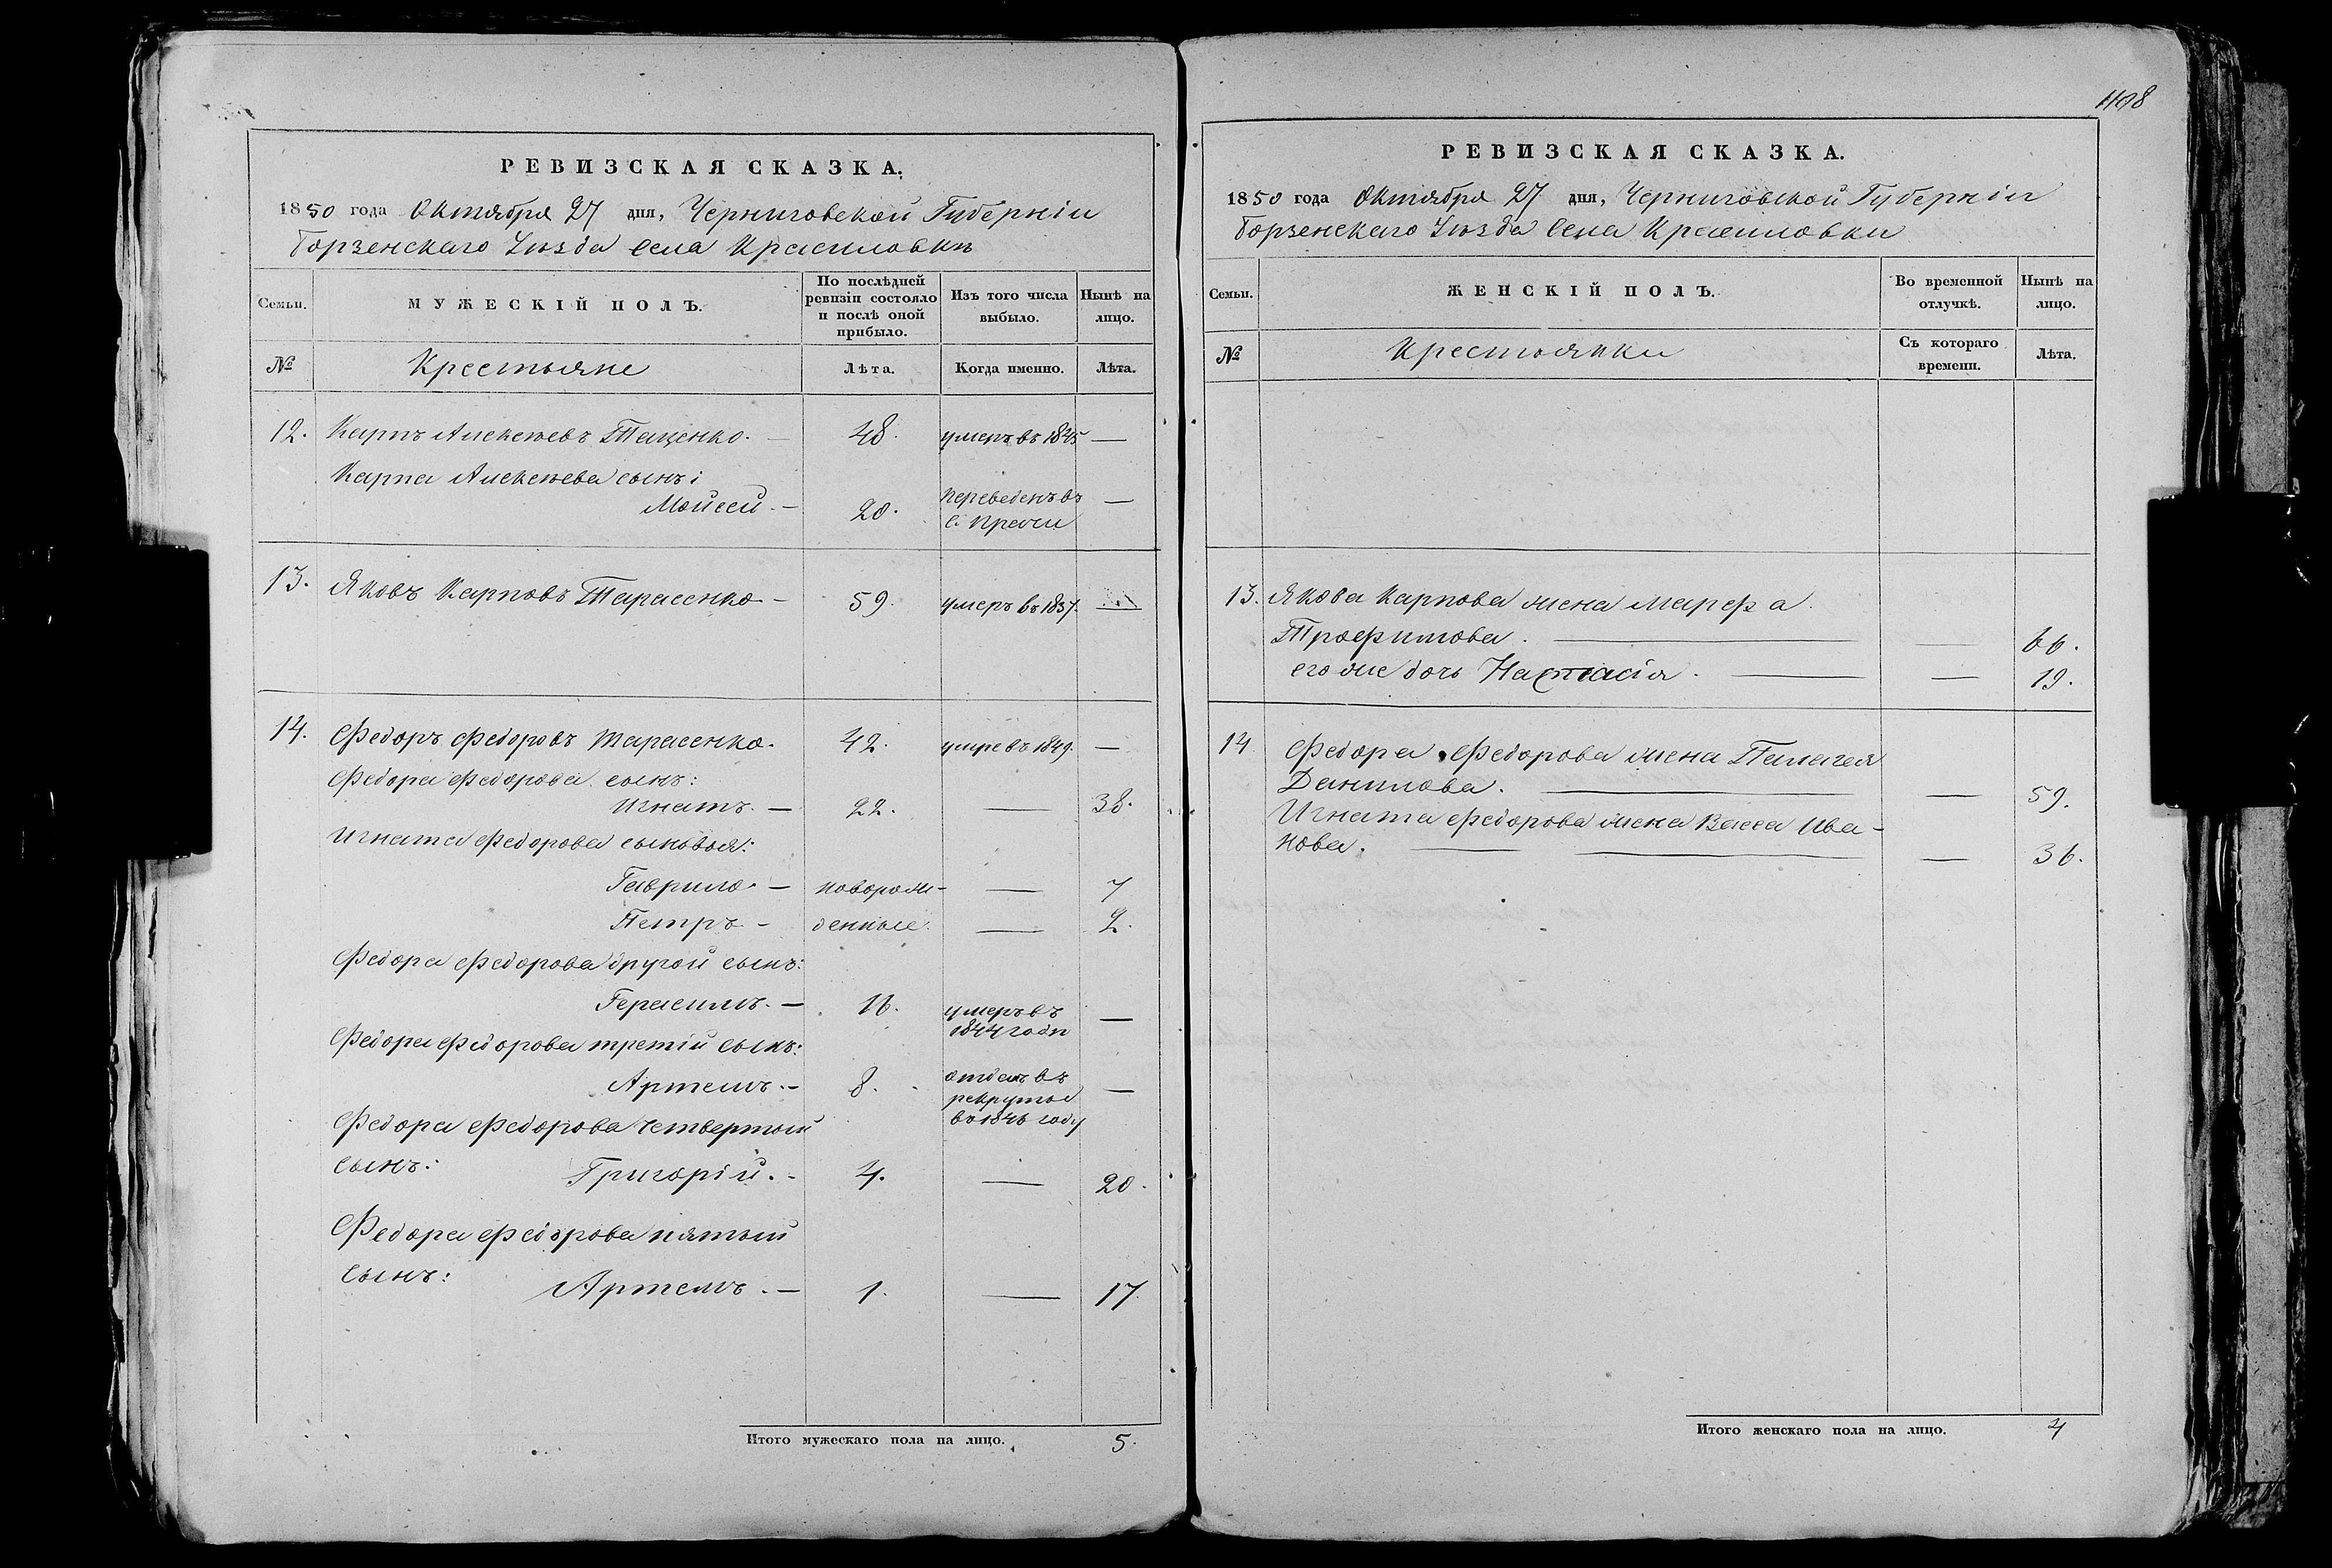 1108
РЕВИЗСКАЯ СКАЗКА.
1850 года Октября 27 дня, Черниговской Губерніи
Борзенскаго Уѣзда Села Красиловки
Семьи.
МУЖЕСКІЙ ПОЛЪ.
По послѣдней ревизіи состояло и послѣ оной прибыло.
Изъ того числа выбыло.
Нынѣ на лицо.
№ Крестьяне Лѣта. Когда именно. Лѣта.
12. Карпъ Алексѣевъ Таценко. — 48. умеръ въ 1845 —
Карпа Алексѣева сынъ:
Мойсей. — 20. переведенъ въ —
с. Прачи
13. Яковъ Карповъ Тарасенко — 59. умеръ въ 1837. —
14. Федоръ Федоровъ Тарасенко. 42. умре въ 1849. —
Федора Федорова сынъ:
Игнатъ. — 22. — 38.
Игната Федорова сыновья:
Гаврило. — новорож- — 7
Петръ — денные. — 2.
Федора Федорова другой сынъ:
Герасимъ. — 16. умеръ въ —
1844 годѣ
Федора Федорова третій сынъ:
Артемъ. — 8. отданъ въ —
рекруты
Федора Федорова четвертый въ 1846 году
сынъ: Григорій. - 4. — 20.
Федора Федорова пятый
сынъ: Артемъ. — 1. — 17.
Итого мужескаго пола на лицо. 5.
РЕВИЗСКАЯ СКАЗКА.
1850 года Октября 27 дня, Черниговской Губерніи
Борзенскаго Уѣзда Села Красиловки
Семьи.
ЖЕНСКІЙ ПОЛЪ.
Во временной отлучкѣ.
Нынѣ на лицо.
№ Крестьянки Съ котораго времени. Лѣта.
13. Якова Карпова жена Марфа
Трофимова. — — 66.
его же дочь Настасія. — — 19.
14 Федора Федорова жена Палагея
Данилова. — — 59.
Игната Федорова жена Васса Ива-
нова. — — — 36.
Итого женскаго пола на лицо. 4